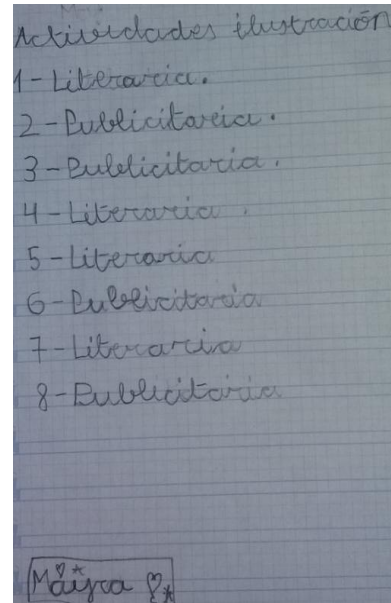 Actividades ilustración
1-Literaria.
2-Publicitaria.
3-Publicitaria.
4-Literaria.
5-Literaria
6-Publicitaria
7-Literaria
8-Publicitaria
Mayra